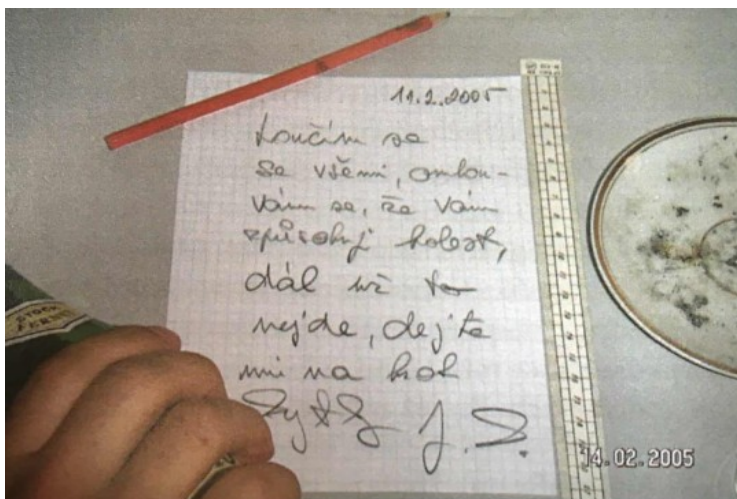 11.2.2005
Loučím se
se všemi, omlou-
vám se, že vám
způsobuji bolest,
dál už to
nejde, dejte
mi na hob
J. Z.
STOCK
FERNET
14.02.2005